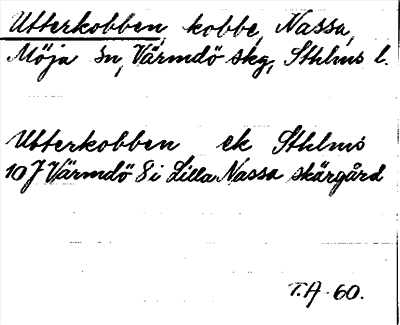 Utterkobben, kobbe, Nassa,
Möja sn, Värmdö skg, Sthlms l.
Utterkobben ek Sthlms
10J Värmdö 8 i Lilla Nassa skärgård
T.A. 60.